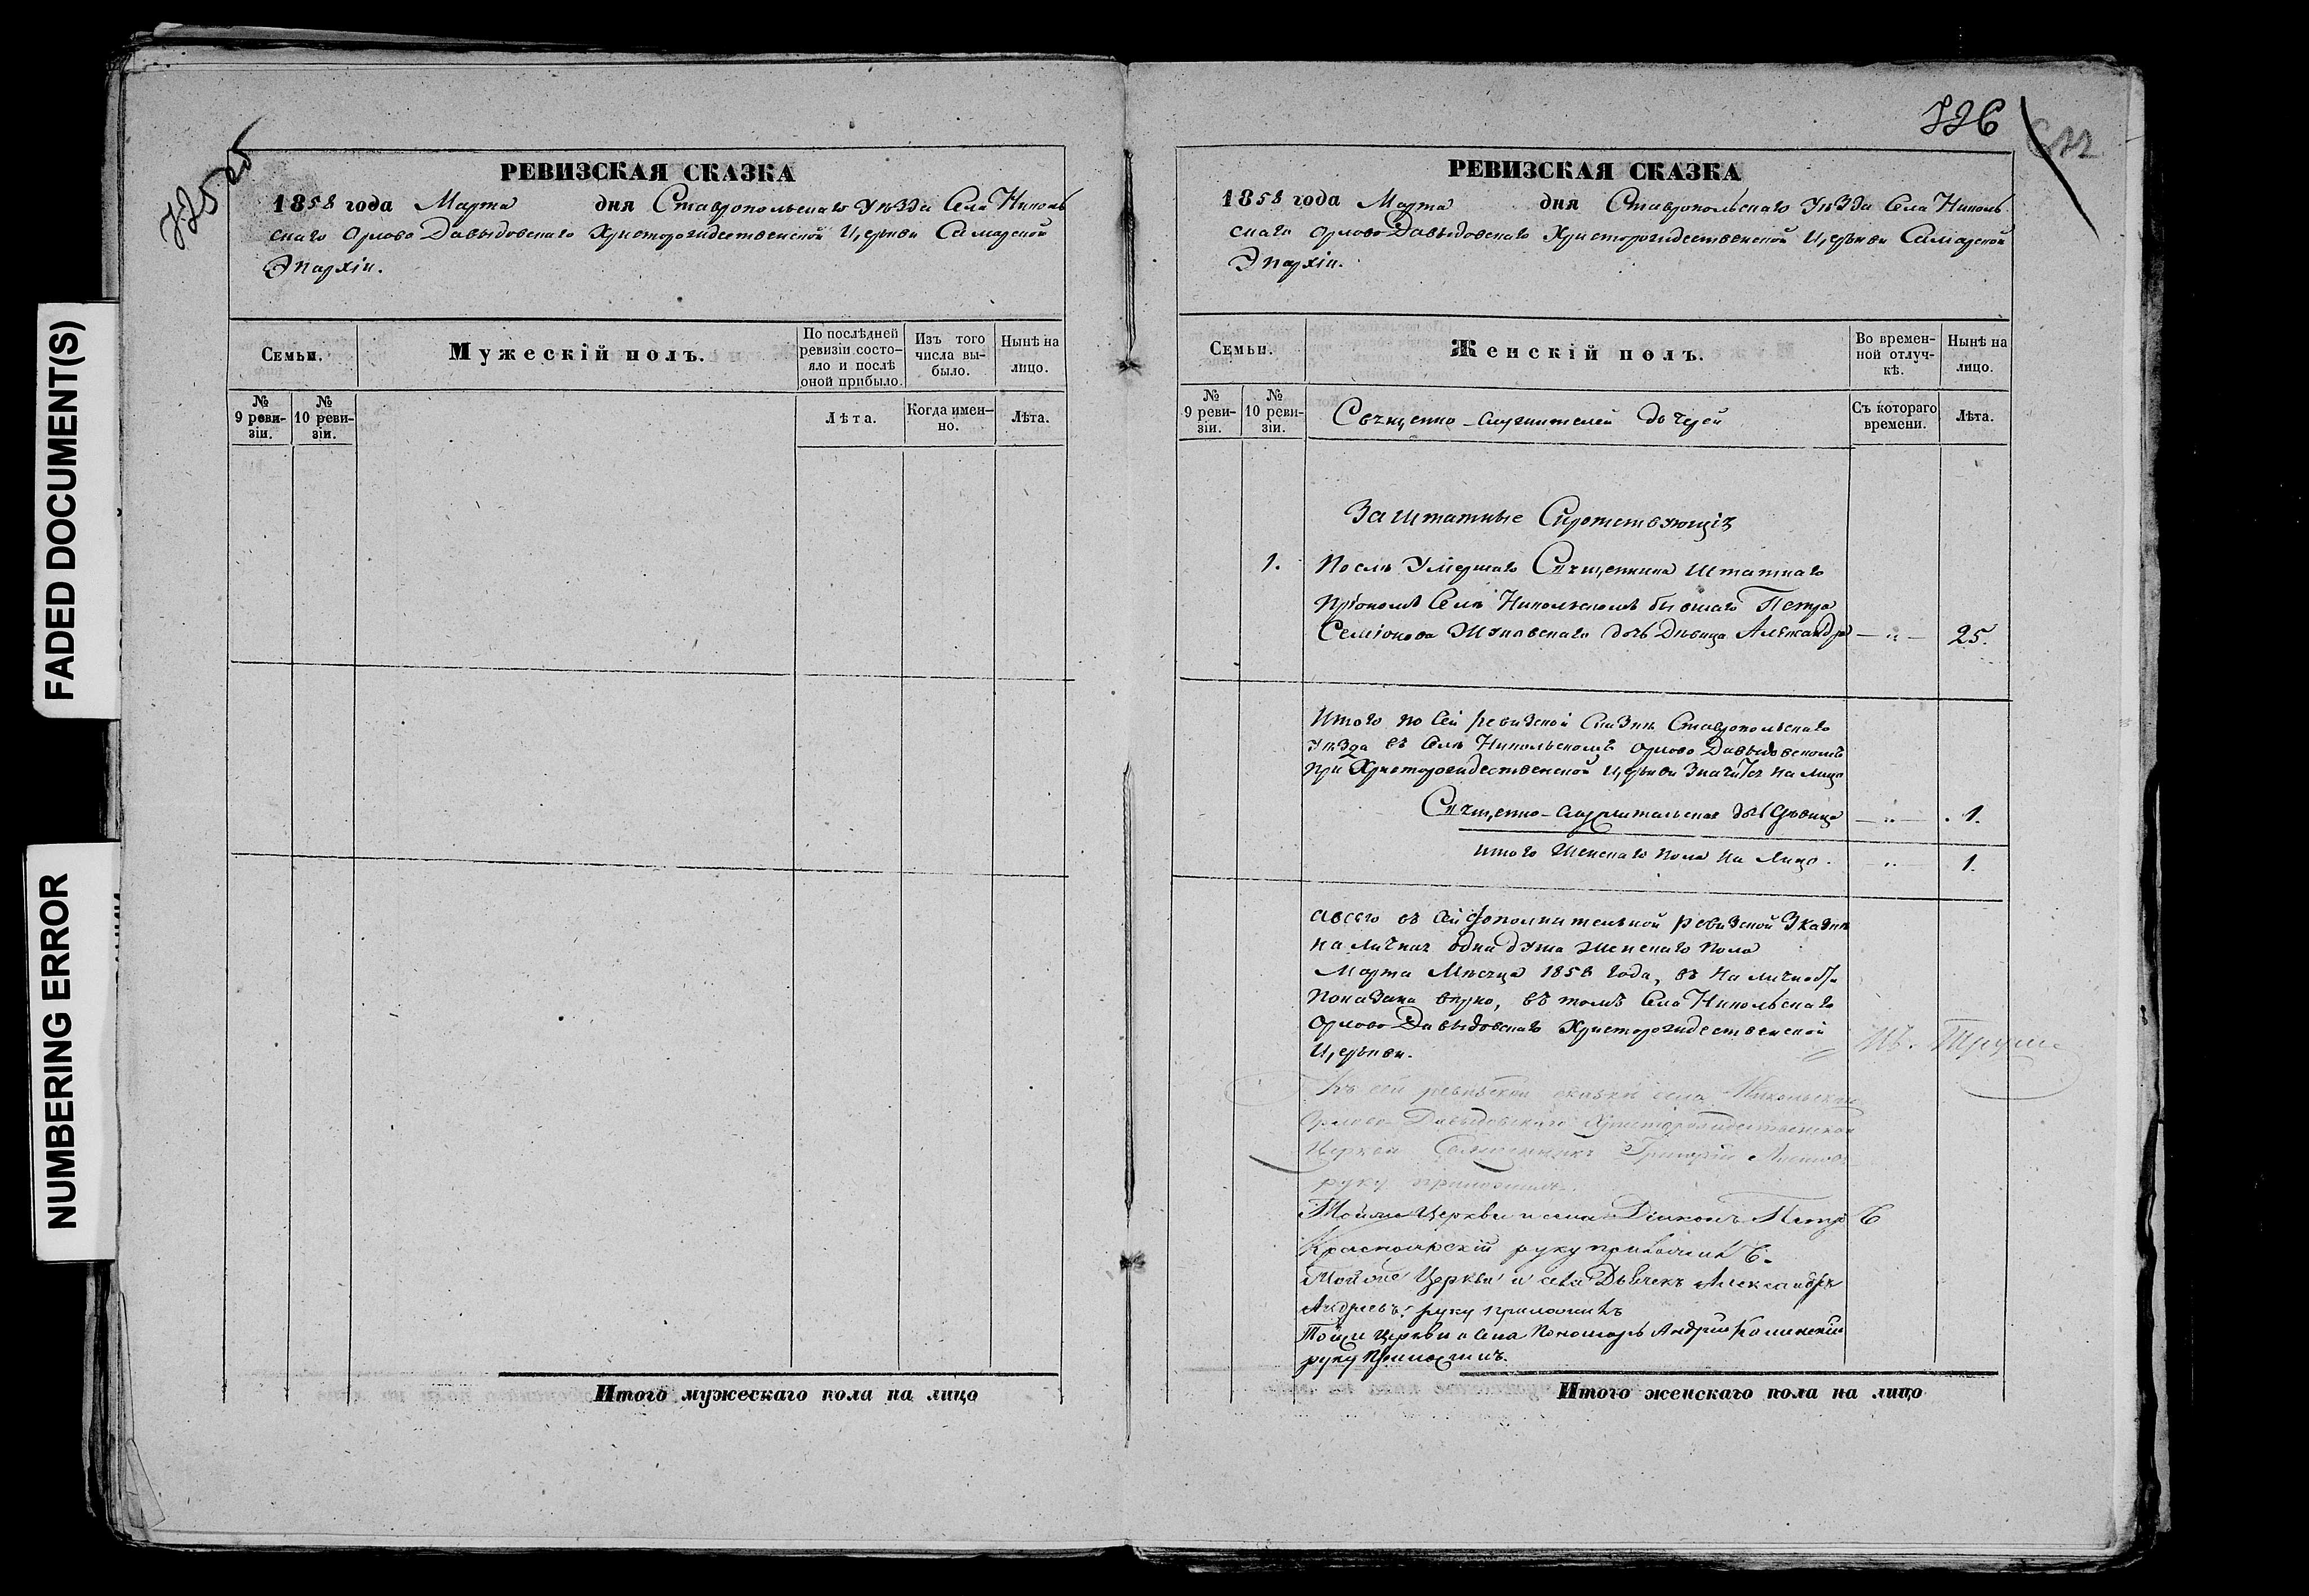 FADED DOCUMENT(S)
NUMBERING ERROR
РЕВИЗСКАЯ СКАЗКА
1858 года Марта дня Ставропольскаго Уѣзда Села Николь
скаго Орлово Давыдовскаго Христорождественской Церкви Самарской
Эпархіи.
Семьи.
Мужескій полъ.
По послѣдней ревизіи состо-
яло и послѣ
оной прибыло.
Изъ того
числа вы-
было.
Нынѣ на
лицо.
№
9 реви-
зіи.
№
10 реви-
зіи.
Лѣта.
Когда имен-
но.
Лѣта.
Итого мужескаго пола на лицо
226
РЕВИЗСКАЯ СКАЗКА
1858 года Марта дня Ставропольскаго Уѣзда Села Николь
скаго Орлово Давыдовскаго Христорождественской Церкви Самарской
Эпархіи.
Семьи.
Женскій полъ.
Во времен-
ной отлуч-
кѣ.
Нынѣ на
лицо.
№
9 реви-
зіи.
№
10 реви-
зіи.
Свящєнно-служителей дочерей
Съ котораго
времени.
Лѣта.
Заштатные Сиротствующіе
1. После Умершаго Священника Штатнаго
Семіонова дочь Дѣвица Александра — „ — 25.
Итого по Сей ревизской Сказкѣ Ставропольскаго
Уѣзда въ Селѣ Никольскомъ Орлово Давыдовскомъ
при Христорождественской Церкви Значится на лицо
Священно-служительская дочь Дѣвица — „ — 1.
Итого Женскаго пола На Лицо. „ 1.
Авсего въ Сей дополнительной ревизской Зказкѣ
на личная одна душа женскаго пола
Марта Мѣсяца 1858 года, въ
показана вѣрно, въ томъ Села Никольскаго
Орлово Давыдовскаго Христорождественской
Церкви.
Къ сей ревизской сказкѣ села Никольскаго
Орлово-Давыдовскаго Христорождественской
Церкви Священникъ Григорій
руку приложилъ.
Тойже Церкви и села Діаконъ Петръ
Красноярскій руку приложилъ
Тойже Церкви и села Дьячекъ Александръ
Андреевъ руку приложилъ
Тойже Церкви и Села Пономарь Андрей
руку Приложилъ.
Итого женскаго пола на лицо